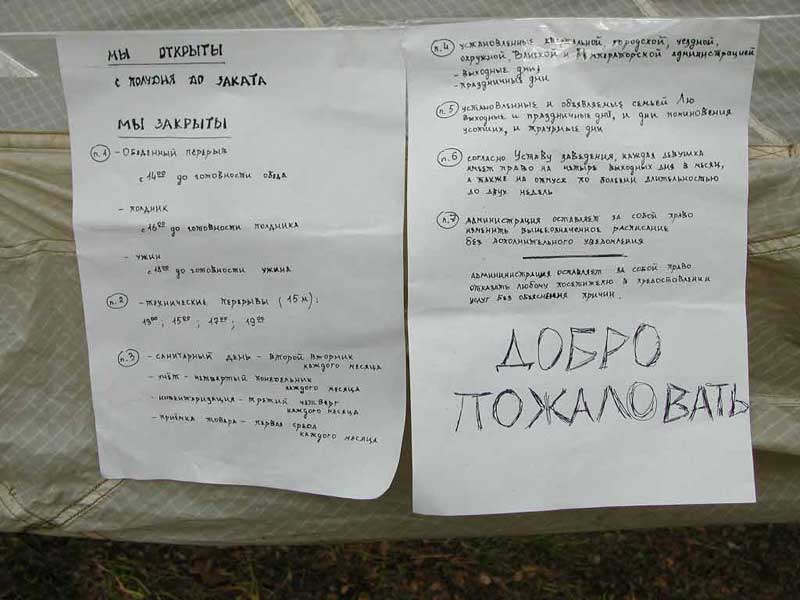 МЫ ОТКРЫТЫ
С ПОЛУДНЯ ДО ЗАКАТА
МЫ ЗАКРЫТЫ
п.1 - Обеденный перерыв
с 14⁰⁰ до готовности обеда
- полдник
с 16⁰⁰ до готовности полдника
- ужин
с 18⁰⁰ до готовности ужина
п.2 - технические перерывы (15 м):
13⁰⁰; 15⁰⁰; 17⁰⁰; 19⁰⁰
п.3 - санитарный день - второй вторник
каждого месяца
- учёт - четвертый понедельник
каждого месяца
- инвентаризация - третий четверг
каждого месяца
- приёмка товара - первая среда
каждого месяца
п.4 установленные квартальной, городской, уездной,
окружной и Императорской администрацией
- выходные дни;
- праздничные дни
п.5 установленные и объявляемые семьей Лю
выходные и праздничные дни, и дни поминовения
усопших, и траурные дни
п.6 согласно Уставу заведения, каждая девушка
имеет право на четыре выходных дня в месяц,
а также на отпуск по болезни длительностью
до двух недель
п.7 администрация оставляет за собой право
изменить вышеозначенное расписание
без дополнительного уведомления
администрация оставляет за собой право
отказать любому посетителю в предоставлении
услуг без объяснения причин.
ДОБРО
ПОЖАЛОВАТЬ